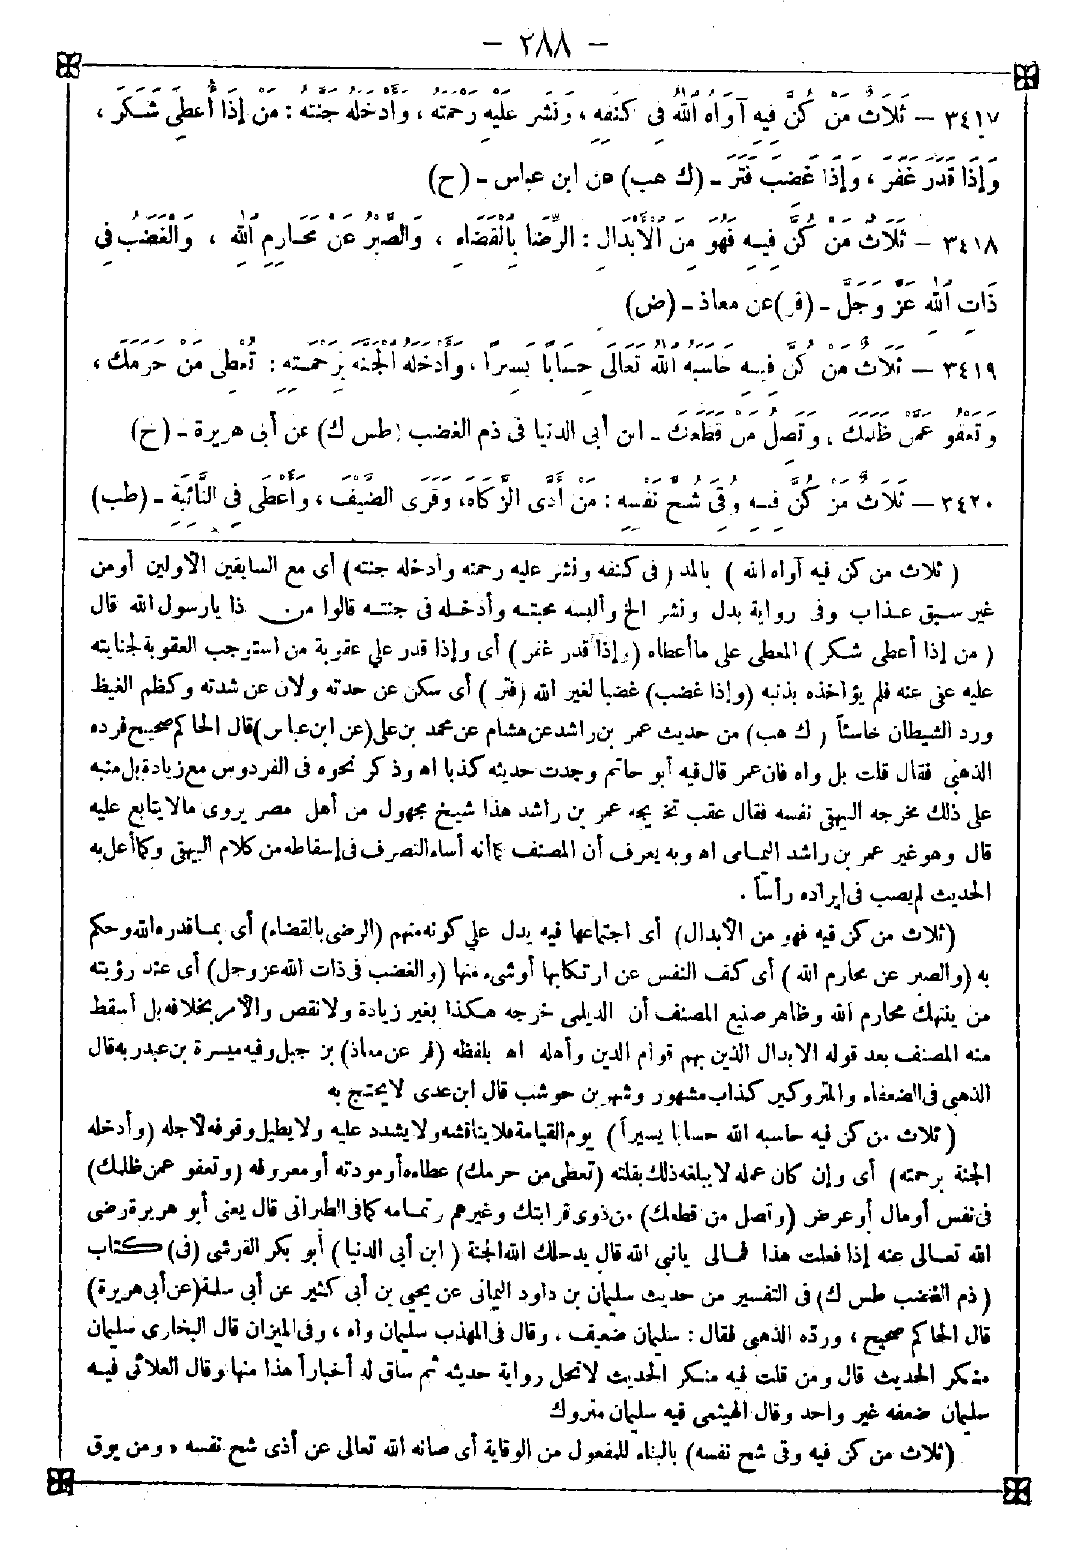 - ٢٨٨ -
٣٤١٧ - ثَلَاثٌ مَنْ كُنَّ فِيهِ آوَاهُ اللهُ فِى كَنَفِهِ، وَنَشَرَ عَلَيْهِ رَحْمَتَهُ، وَأَدْخَلَهُ جَنَّتَهُ: مَنْ إِذَا أُعْطِىَ شَكَرَ،
وَإِذَا قَدَرَ غَفَرَ، وَإِذَا غَضِبَ فَتَرَ - (ك هب) عن ابن عباس - (ح)
٣٤١٨ - ثَلَاثٌ مَنْ كُنَّ فِيهِ فَهُوَ مِنَ الْأَبْدَالِ: الرِّضَا بِالْقَضَاءِ، وَالصَّبْرُ عَنْ مَحَارِمِ اللهِ، وَالْغَضَبُ فِى
ذَاتِ اللهِ عَزَّ وَجَلَّ - (فر) عن معاذ - (ض)
٣٤١٩ - ثَلَاثٌ مَنْ كُنَّ فِيهِ حَاسَبَهُ اللهُ تَعَالَى حِسَابًا يَسِيرًا، وَأَدْخَلَهُ الْجَنَّةَ بِرَحْمَتِهِ: تُعْطِى مَنْ حَرَمَكَ،
وَتَعْفُو عَمَّنْ ظَلَمَكَ، وَتَصِلُ مَنْ قَطَعَكَ - ابن أبى الدنيا فى ذم الغضب (طس ك) عن أبى هريرة - (ح)
٣٤٢٠ - ثَلَاثٌ مَنْ كُنَّ فِيهِ وُقِىَ شُحَّ نَفْسِهِ: مَنْ أَدَّى الزَّكَاةَ، وَقَرَى الضَّيْفَ، وَأَعْطَى فِى النَّائِبَةِ - (طب)
(ثلاث من كن فيه آواه الله) بالمد (فى كنفه ونشر عليه رحمته وأدخله جنته) أى مع السابقين الأولين أو من
غير سبق عذاب وفى رواية بدل ونشر الخ وألبسه محبته وأدخله فى جنته قالوا من ذا يا رسول الله قال
(من إذا أعطى شكر) المعطى على ما أعطاه (وإذا قدر غفر) أى وإذا قدر على عقوبة من استوجب العقوبة لجنايته
عليه عفى عنه فلم يؤاخذه بذنبه (وإذا غضب) غضبا لغير الله (فتر) أى سكن عن حدته ولان عن شدته وكظم الغيظ
ورد الشيطان خاسئاً (ك هب) من حديث عمر بن راشد عن هشام عن محمد بن على (عن ابن عباس) قال الحاكم صحيح فرده
الذهبى فقال قلت بل واه فإن عمر قال فيه أبو حاتم وجدت حديثه كذبا اه وذكر نحوه فى الفردوس مع زيادة بل منبه
على ذلك مخرجه البيهقى نفسه فقال عقب تخريجه عمر بن راشد هذا شيخ مجهول من أهل مصر يروى ما لا يتابع عليه
قال وهو غير عمر بن راشد اليمامى اه وبه يعرف أن المصنف كما أنه أساء التصرف فى إسقاطه من كلام البيهقى وكما أعل به
الحديث لم يصب فى إيراده رأساً.
(ثلاث من كن فيه فهو من الأبدال) أى اجتماعها فيه يدل على كونه منهم (الرضى بالقضاء) أى بما قدره الله وحكم
به (والصبر عن محارم الله) أى كف النفس عن ارتكابها أو شىء منها (والغضب فى ذات الله عز وجل) أى عند رؤيته
من ينتهك محارم الله وظاهر صنيع المصنف أن الديلمى خرجه هكذا بغير زيادة ولا نقص والأمر بخلافه بل أسقط
منه المصنف بعد قوله الابدال الذين بهم قوام الدين وأهله اه بلفظه (فر عن معاذ) بن جبل وفيه ميسرة بن عبد ربه قال
الذهبى فى الضعفاء والمتروكين كذاب مشهور وشهر بن حوشب قال ابن عدى لا يحتج به
(ثلاث من كن فيه حاسبه الله حسابا يسيراً) يوم القيامة فلا يناقشه ولا يشدد عليه ولا يطيل وقوفه لأجله (وأدخله
الجنة برحمته) أى وإن كان عمله لا يبلغه ذلك بقلته (تعطى من حرمك) عطاءه أو مودته أو معروفه (وتعفو عمن ظلمك)
فى نفس أو مال أو عرض (وتصل من قطعك) من ذوى قرابتك وغيرهم وتمامه كما فى الطبرانى قال يعنى أبو هريرة رضى
الله تعالى عنه إذا فعلت هذا فما لى يا نبى الله قال يدخلك الله الجنة (ابن أبى الدنيا) أبو بكر القرشى (فى) كتاب
(ذم الغضب طس ك) فى التفسير من حديث سليمان بن داود اليمانى عن يحيى بن أبى كثير عن أبى سلمة (عن أبى هريرة)
قال الحاكم صحيح، ورده الذهبى فقال: سليمان ضعيف، وقال فى المهذب سليمان واه، وفى الميزان قال البخارى سليمان
منكر الحديث قال ومن قلت فيه منكر الحديث لا تحل رواية حديثه ثم ساق له أخباراً هذا منها وقال العلائى فيه
سليمان ضعفه غير واحد وقال الهيثمى فيه سليمان متروك
(ثلاث من كن فيه وقى شح نفسه) بالبناء للمفعول من الوقاية أى صانه الله تعالى عن أذى شح نفسه «ومن يوق